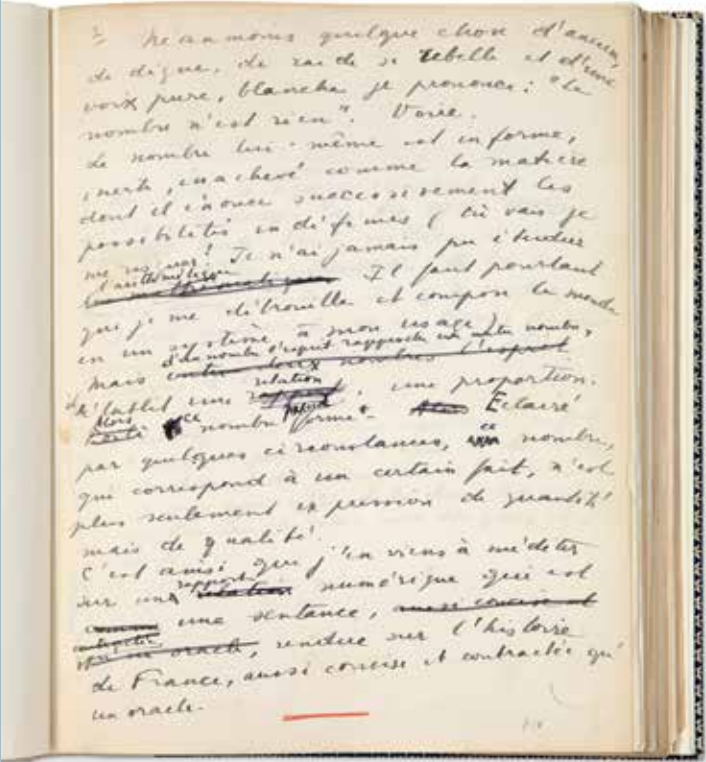 2 Néanmoins quelque chose d'ancien,
de digne, de raide se rebelle et d'une
voix pure, blanche je prononce : "le
nombre n'est rien". Voire.
Le nombre lui-même est informe,
inerte, inachevé comme la matière
dont il énonce successivement les
possibilités indéfinies (tu vas je
me ! Je n'ai jamais pu étudier
l'arithmétique
les mathématiques Il faut pourtant
que je me débrouille et compose le monde
en un système à mon usage)
d'un nombre l'esprit rapproche un autre nombre,
Mais entre deux nombres l'esprit
relation
établit une rapport, une proportion.
Alors ce
nombre forme. Eclairé
par quelques circonstances, ce nombre,
qui correspond à un certain fait, n'est
plus seulement expression de quantité
mais de qualité.
C'est ainsi que j'en viens à méditer
rapport
sur un relation numérique qui est
comme une sentence, aussi concise et
contractée
qu'un oracle, rendue sur l'histoire
de France, aussi concise et contractée qu'
un oracle.